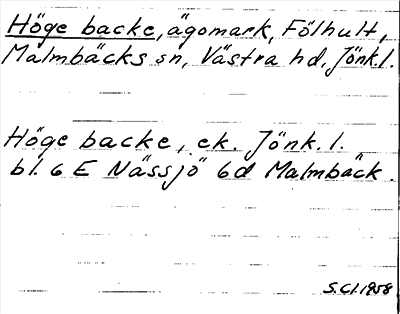 Höge backe, ägomark, Fölhult,
Malmbäcks sn, Västra hd, Jönk.l.
Höge backe, ek. Jönk. l.
bl. 6 E Nässjö 6d Malmbäck.
S.Cl.1958